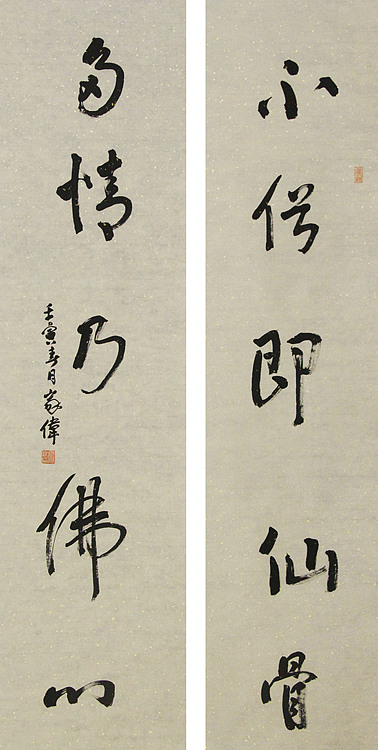 不俗即仙骨
多情乃佛心
壬寅春月家偉